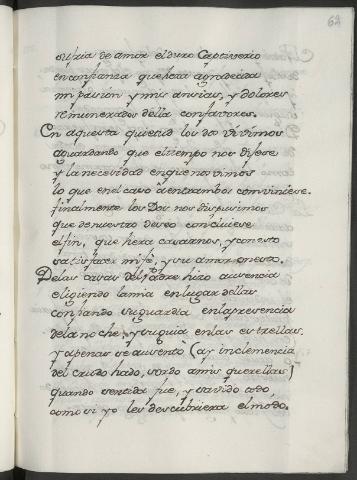 62
sufria de amor el duro Captiverio
en confianza que hera agradecida
mi pasion y mis ansias, y dolores
remunerados della con favores.
En aquesta quietud los dos vivimos
aguardando que el tiempo nos dijese
y la necesidad en que nos vimos
lo que en el caso a entrambos conviniese.
finalmente los Dos nos dispusimos
que de nuestro deseo con
el fin, que hera casarnos, y con esto
satisfacer mi fè, y su amor onesto.
De las casas del Padre hizo ausencia
eligiendo la mia en lugar dellas
confiando su guardia en la presencia
de la noche, y su guia en las estrellas,
y apenas se ausentò (ay inclemencia
del crudo hado, sordo a mis querellas)
quando sentida fue, y savido todo
como si yo les descubriera el modo.